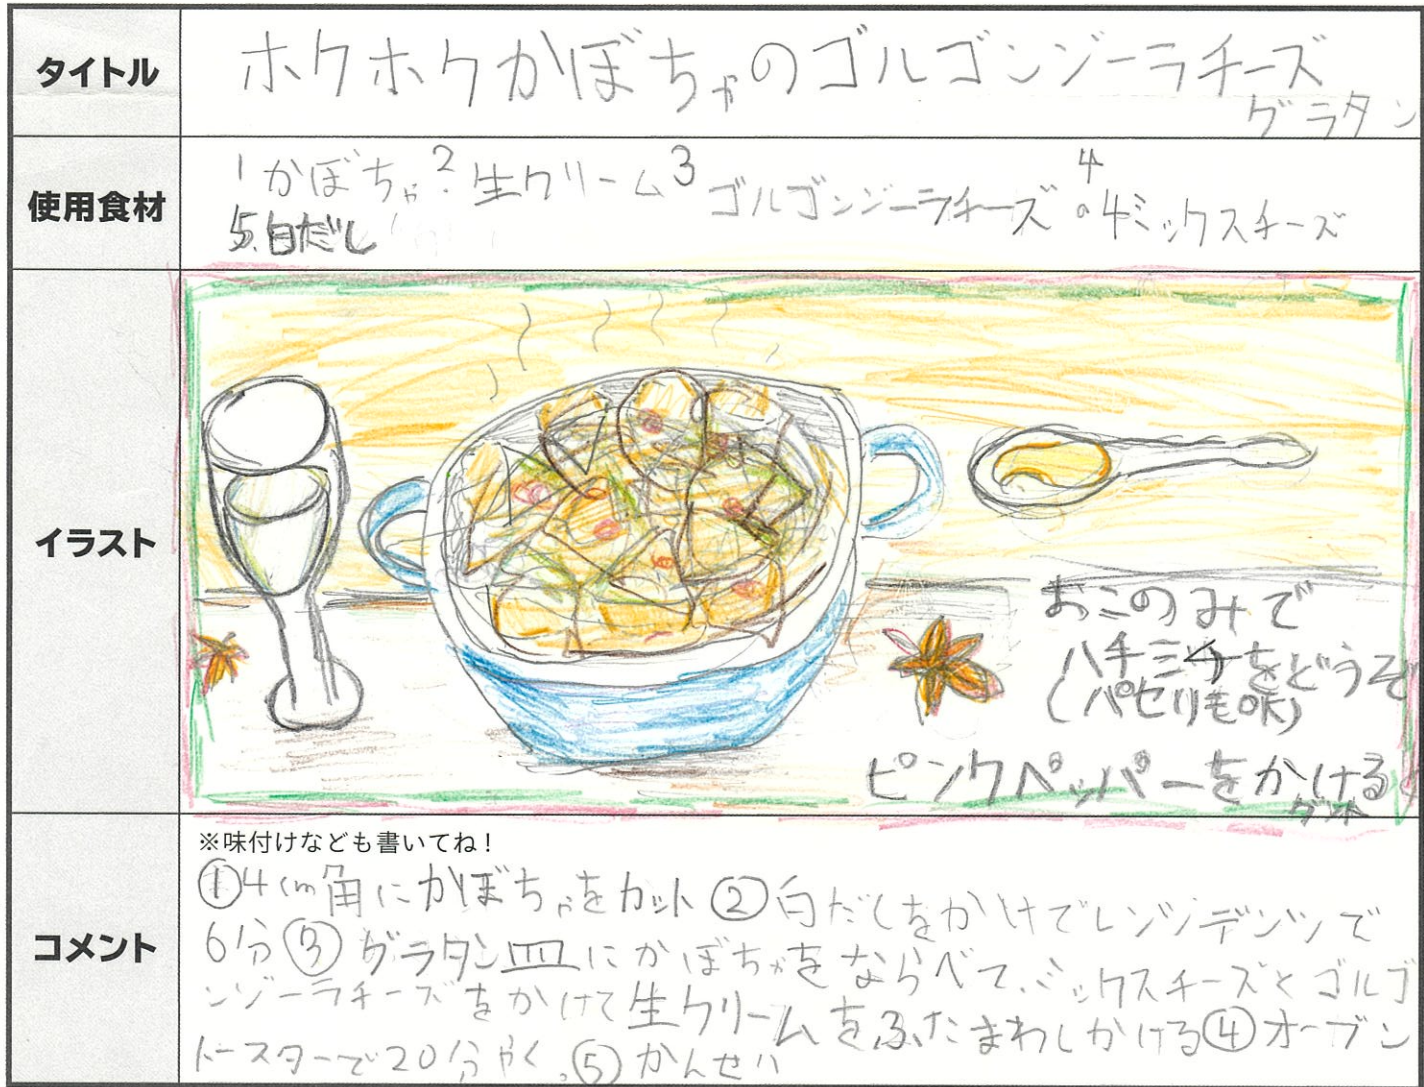 タイトル
ホクホクかぼちゃのゴルゴンジーラチーズ
グラタン
使用食材
1 かぼちゃ 2. 生クリーム 3 ゴルゴンジーラチーズ 4の4ミックスチーズ
5.白だし
イラスト
おこのみで
ハチミチをどうぞ
(パセリもOK)
ピンクペッパーをかける
コメント
※味付けなども書いてね!
①4cm角にかぼちゃをカット ②白だしをかけてレンジデンジで
6分③グラタン皿にかぼちゃをならべて、ミックスチーズとゴルゴ
ンジーラチーズをかけて生クリームをふたまわしかける④オーブン
トースターで20分やく。⑤かんせい